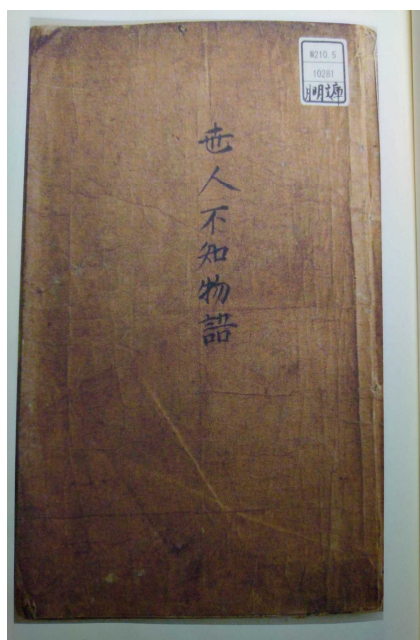 M210.5
10281
明文庫
世人不知物語